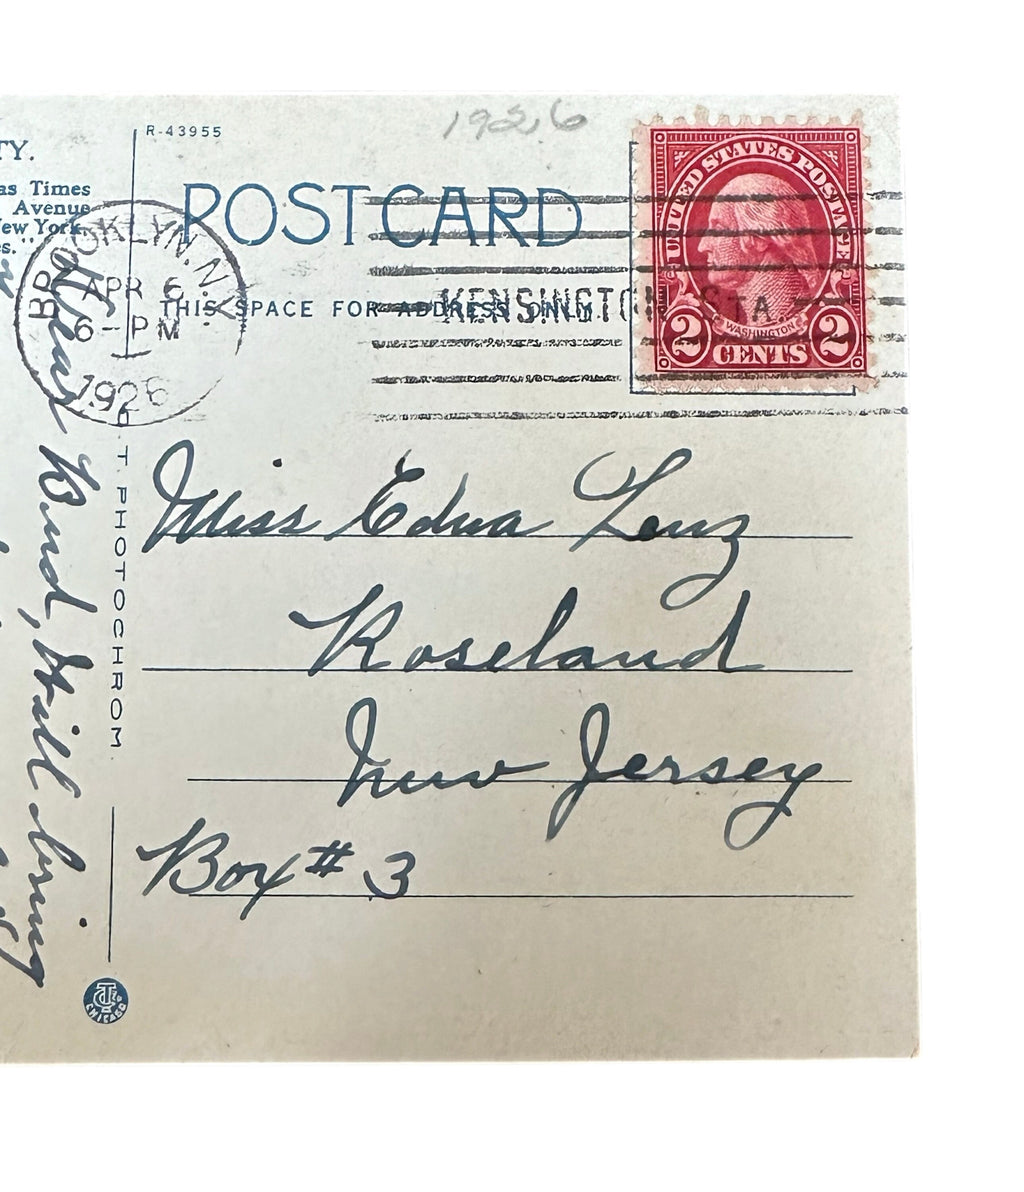 R-43955
1926
TY.
as Times
Avenue
New York.
es."
POST CARD
THIS SPACE FOR ADDRESS ONLY
BROOKLYN, N.Y.
APR 6
6-PM
1926
KENSINGTON STA.
UNITED STATES POSTAGE
WASHINGTON
2 CENTS 2
Miss Edna Lenz
Roseland
New Jersey
Box # 3
Dear Bud, Will bring
T PHOTOCHROM
CHICAGO